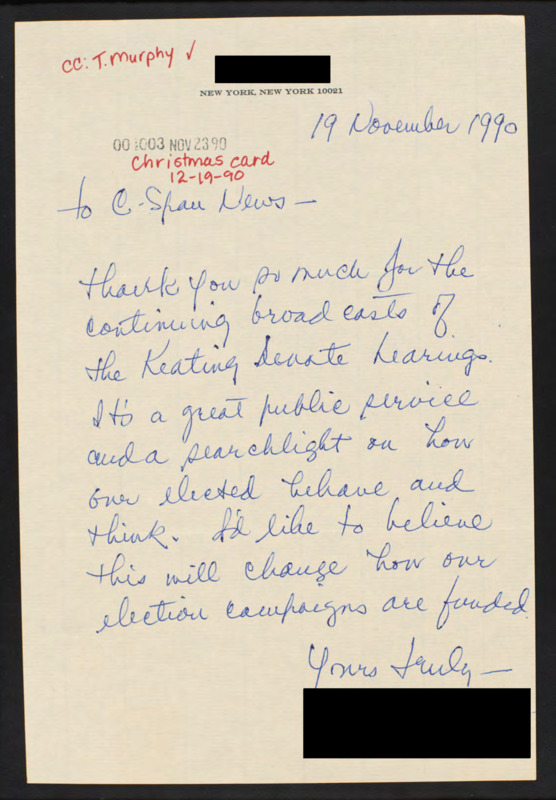 cc: T. Murphy ✓
NEW YORK, NEW YORK 10021
19 November 1990
001003 NOV 23 90
Christmas card
12-19-90
to C-Span News —
Thank you so much for the
continuing broadcasts of
the Keating Senate hearings.
It's a great public service
and a searchlight on how
our elected behave and
think. I'd like to believe
this will change how our
election campaigns are funded.
Yours truly —